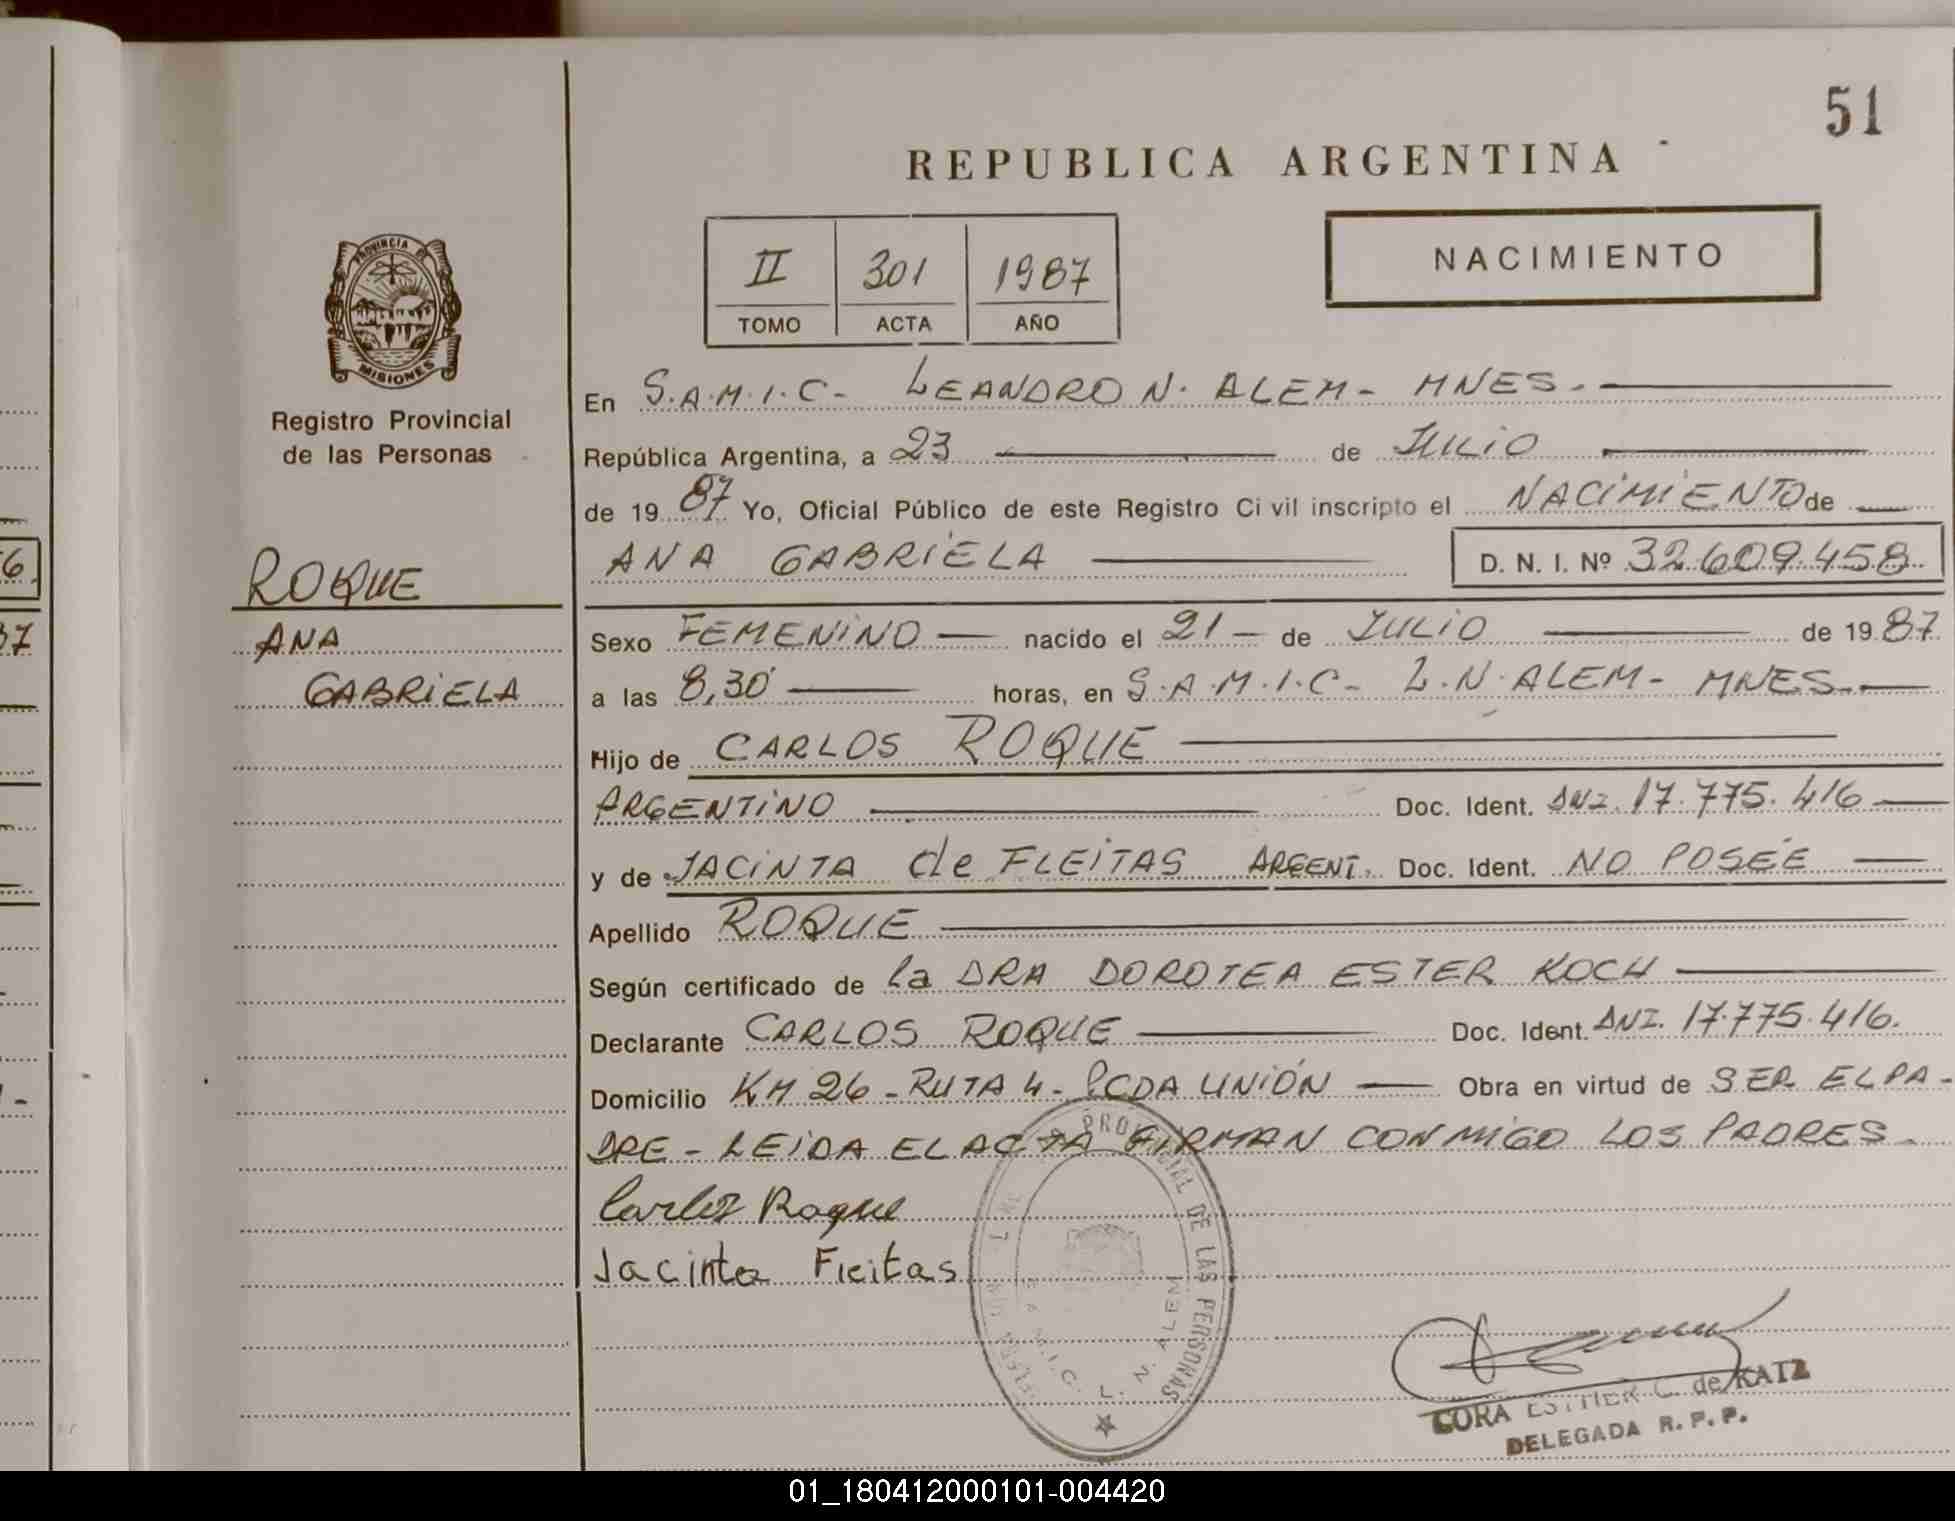 51
REPUBLICA ARGENTINA
II 301 1987
TOMO ACTA AÑO
NACIMIENTO
PROVINCIA DE MISIONES
Registro Provincial
de las Personas
ROQUE
ANA
GABRIELA
En S.A.M.I.C- LEANDRO N. ALEM- MNES-
República Argentina, a 23 de JULIO
de 19 87 Yo, Oficial Público de este Registro Civil inscripto el NACIMIENTO de
ANA GABRIELA D. N. I. Nº 32.609.458.
Sexo FEMENINO nacido el 21 de JULIO de 19 87
a las 8,30 horas, en S.A.M.I.C- L.N.ALEM- MNES-
Hijo de CARLOS ROQUE
ARGENTINO Doc. Ident. DNI. 17.775.416
y de JACINTA de FLEITAS ARGENT. Doc. Ident. NO POSEE
Apellido ROQUE
Según certificado de la DRA DOROTEA ESTER KOCH
Declarante CARLOS ROQUE Doc. Ident. DNI. 17.775.416.
Domicilio KM 26 - RUTA 4 - PCDA UNIÓN Obra en virtud de SER EL PA-
DRE - LEIDA EL ACTA FIRMAN CONMIGO LOS PADRES-
Carlos Roque
Jacinta Fleitas
PROVINCIAL DE LAS PERSONAS
S.A.M.I.C. L. N. ALEM
CORA ESTHER C. de KATZ
DELEGADA R. P. P.
6.
37
01_180412000101-004420